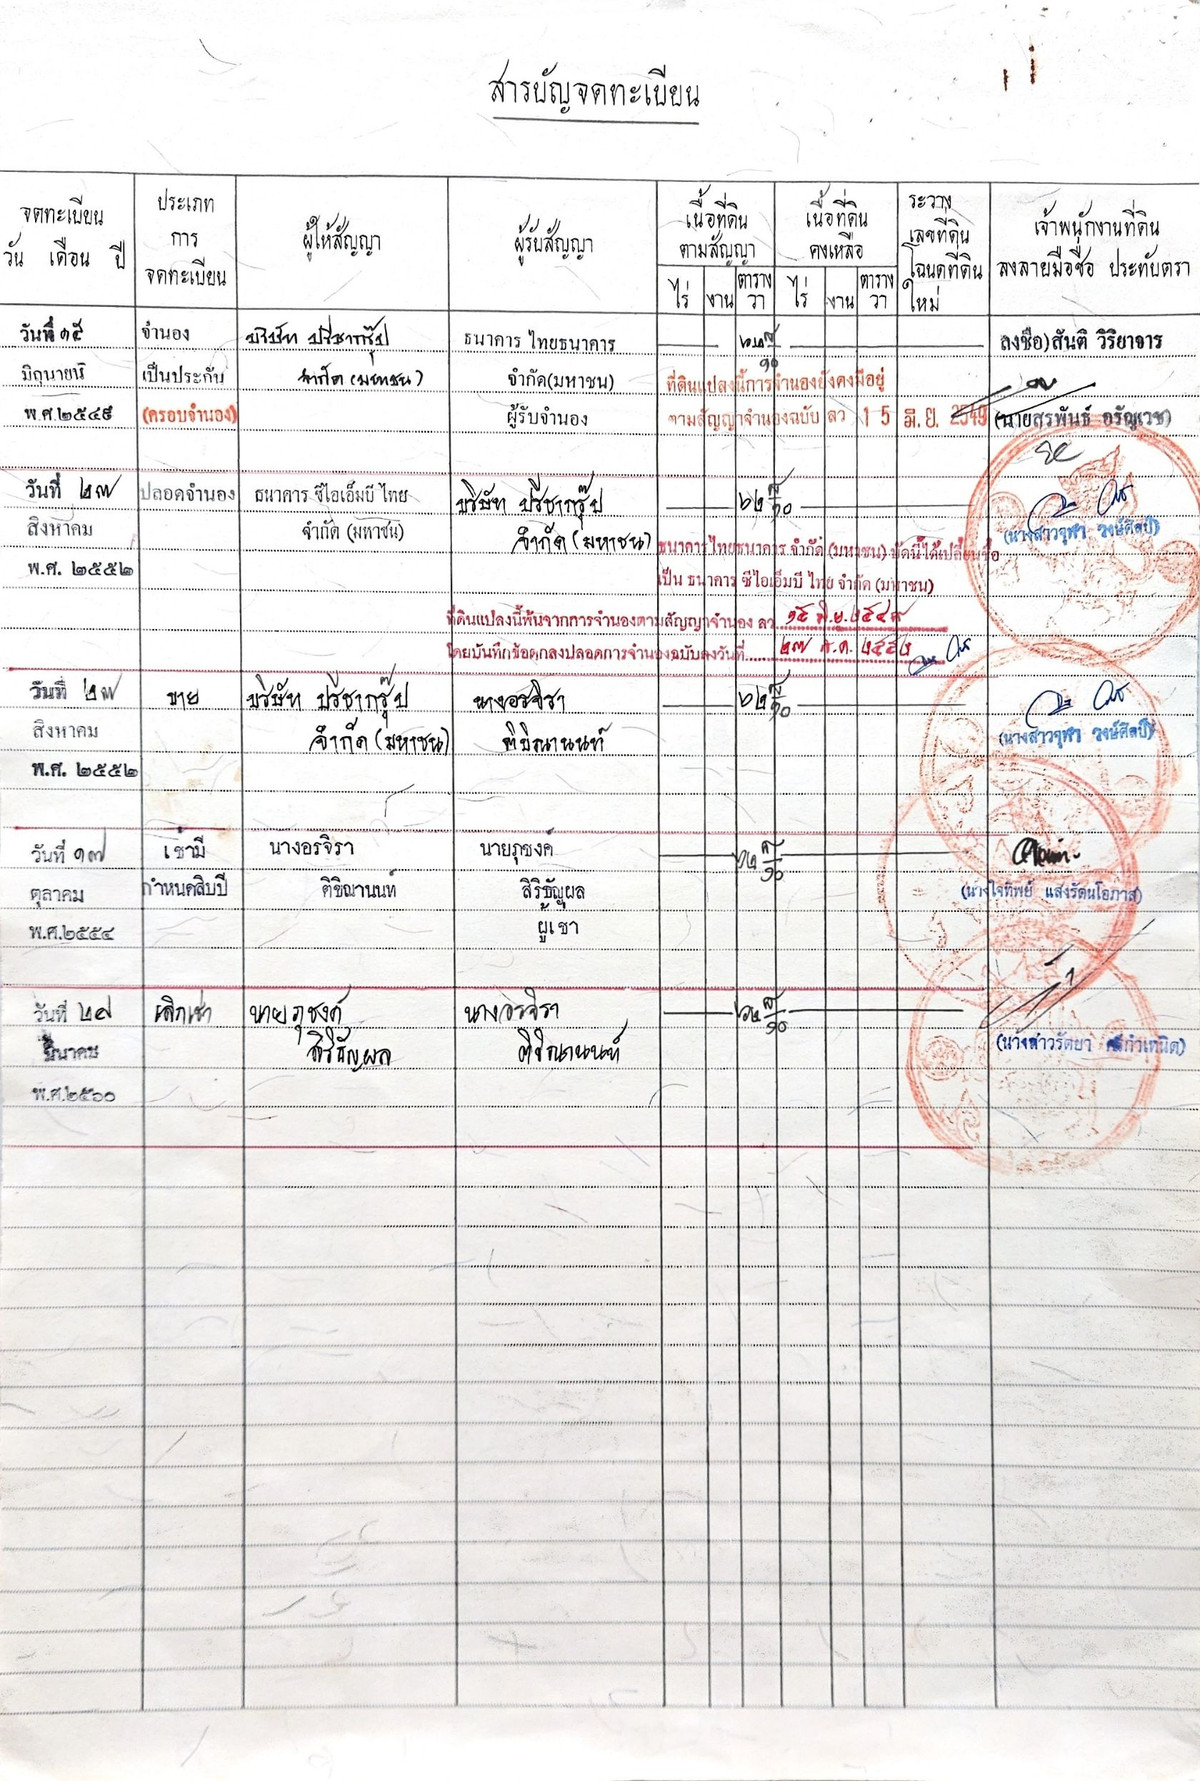 สารบัญจดทะเบียน
จดทะเบียน
วัน เดือน ปี
ประเภท
การ
จดทะเบียน
ผู้ให้สัญญา
ผู้รับสัญญา
เนื้อที่ดิน
ตามสัญญา
ไร่ งาน ตาราง
วา
เนื้อที่ดิน
คงเหลือ
ไร่ งาน ตาราง
วา
ระวาง
เลขที่ดิน
โฉนดที่ดิน
ใหม่
เจ้าพนักงานที่ดิน
ลงลายมือชื่อ ประทับตรา
วันที่ ๑๕ จำนอง บริษัท ปรีชากรุ๊ป ธนาคาร ไทยธนาคาร ลงชื่อ)สันติ วิริยาจาร
มิถุนายน เป็นประกัน จำกัด (มหาชน) จำกัด(มหาชน) ที่ดินแปลงนี้การจำนองยังคงมีอยู่
พ.ศ.๒๕๔๙ (ครอบจำนอง) ผู้รับจำนอง ตามสัญญาจำนองฉบับ ลว 15 มิ.ย. 2549 (นายสุรพันธ์ อรัญเวช)
วันที่ ๒๗ ปลอดจำนอง ธนาคาร ซีไอเอ็มบี ไทย บริษัท ปรีชากรุ๊ป ๒๒ ๘/๑๐
สิงหาคม จำกัด (มหาชน) จำกัด (มหาชน) (นางสาวจุฬา วงษ์ศิลป์)
ธนาคารไทยธนาคาร จำกัด (มหาชน) บัดนี้ได้เปลี่ยนชื่อ
พ.ศ. ๒๕๕๒ เป็น ธนาคาร ซีไอเอ็มบี ไทย จำกัด (มหาชน)
ที่ดินแปลงนี้พ้นจากการจำนองตามสัญญาจำนอง ลว. ๑๕ มิ.ย. ๒๕๔๙
โดยบันทึกข้อตกลงปลอดการจำนองฉบับลงวันที่ ๒๗ ส.ค. ๒๕๕๒
วันที่ ๒๗ ขาย บริษัท ปรีชากรุ๊ป นางอรจิรา ๒๒ ๘/๑๐
สิงหาคม จำกัด (มหาชน) ติชิณานนท์ (นางสาวจุฬา วงษ์ศิลป์)
พ.ศ. ๒๕๕๒
วันที่ ๑๗ เช่ามี นางอรจิรา นายภุชงค์ ๒๒ ๘/๑๐
ตุลาคม กำหนดสิบปี ติชิณานนท์ สิริธัญผล (นางใจทิพย์ แสงรัตนโอภาส)
พ.ศ.๒๕๕๔ ผู้เช่า
วันที่ ๒๗ เลิกเช่า นายภุชงค์ นางอรจิรา ๒๒ ๘/๑๐
มีนาคม สิริธัญผล ติชิณานนท์ (นางสาวรัตยา
พ.ศ.๒๕๖๐